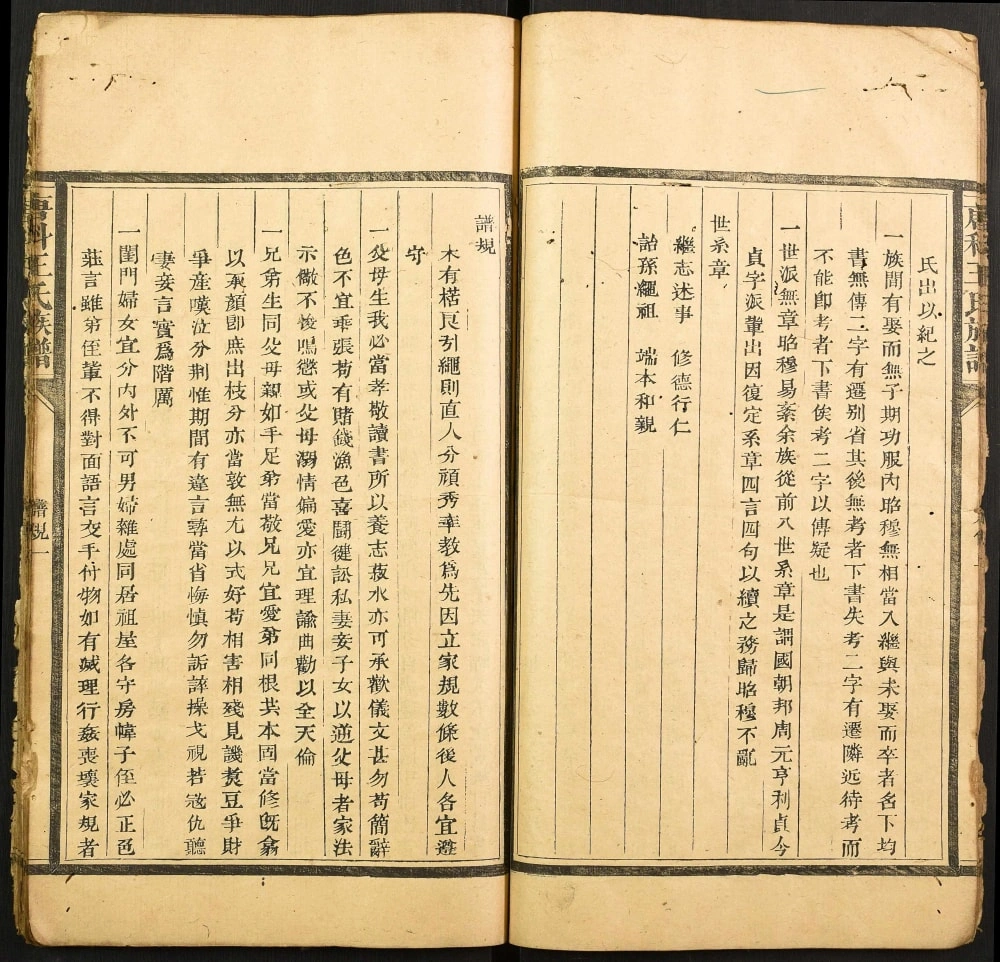 氏出以紀之
一族間有娶而無子期功服內昭穆無相當入繼與未娶而卒者名下均
書無傳二字有遷別省其後無考者下書失考二字有遷隣近待考而
不能卽考者下書俟考二字以傳疑也
一世派無章昭穆易紊余族從前八世系章是謂國朝邦周元亨利貞今
貞字派輩出因復定系章四言四句以續之務歸昭穆不亂
世系章
繼志述事 修德行仁
詒孫繩祖 端本和親
譜規
木有楛良引繩則直人分頑秀率教爲先因立家規數條後人各宜遵
守
一父母生我必當孝敬讀書所以養志菽水亦可承歡儀文甚勿苟簡辭
色不宜乖張苟有賭錢漁色喜鬪健訟私妻妾子女以逆父母者家法
示儆不悛鳴懲或父母溺情偏愛亦宜理諭曲勸以全天倫
一兄弟生同父母親如手足弟當敬兄兄宜愛弟同根共本固當修旣翕
以承顏卽庶出枝分亦當敦無尤以式好苟相害相殘見譏煑豆爭財
爭產嘆泣分荆惟期間有違言尋當省悔慎勿詬誶操戈視若寇仇聽
妻妾言實爲階厲
一閨門婦女宜分內外不可男婦雜處同居祖屋各守房幃子侄必正色
莊言雖弟侄輩不得對面語言交手付物如有滅理行姦喪壞家規者
王氏族譜
譜規一